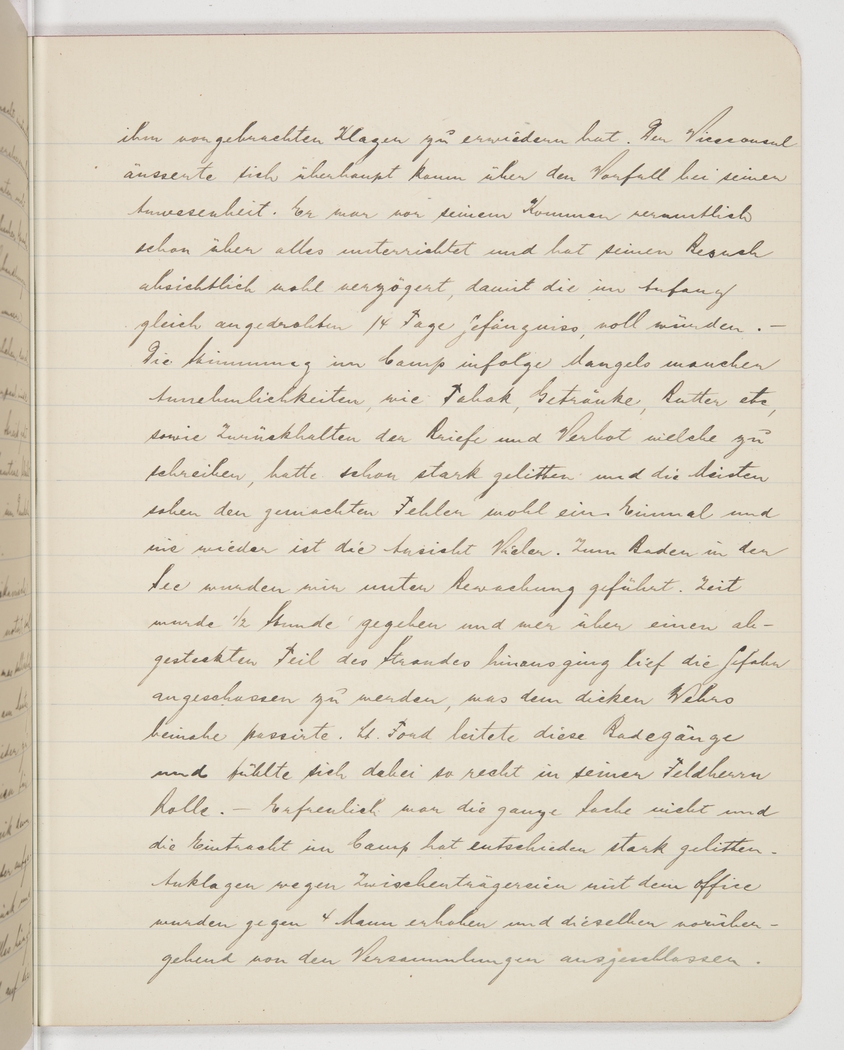 ihm vorgebrachten Klagen zu erwiedern hat. Der Viceconsul
äusserte sich überhaupt kaum über den Vorfall bei seiner
Anwesenheit. Er war vor seinem Kommen vermutlich
schon über alles unterrichtet und hat seinen Besuch
absichtlich wohl verzögert, damit die im Anfang
gleich angedrohten 14 Tage Gefängniss, voll würden. –
Die Stimmung im Camp infolge Mangels mancher
Annehmlichkeiten, wie Tabak, Getränke, Butter etc,
sowie Zurückhalten der Briefe und Verbot welche zu
schreiben, hatte schon stark gelitten und die Meisten
sahen den gemachten Fehler wohl ein. Einmal und
nie wieder ist die Ansicht Vieler. Zum Baden in der
See wurden wir unter Bewachung geführt. Zeit
wurde 1/2 Stunde gegeben und wer über einen ab-
gesteckten Teil des Strandes hinausging lief die Gefahr
angeschossen zu werden, was dem dicken Wehrs
beinahe passirte. Lt. Ford leitete diese Badegänge
und fühlte sich dabei so recht in seiner Feldherrn
Rolle. – Erfreulich war die ganze Sache nicht und
die Eintracht im Camp hat entschieden stark gelitten.
Anklagen wegen Zwischenträgereien mit dem office
wurden gegen 4 Mann erhoben und dieselben vorüber-
gehend von den Versammlungen ausgeschlossen.